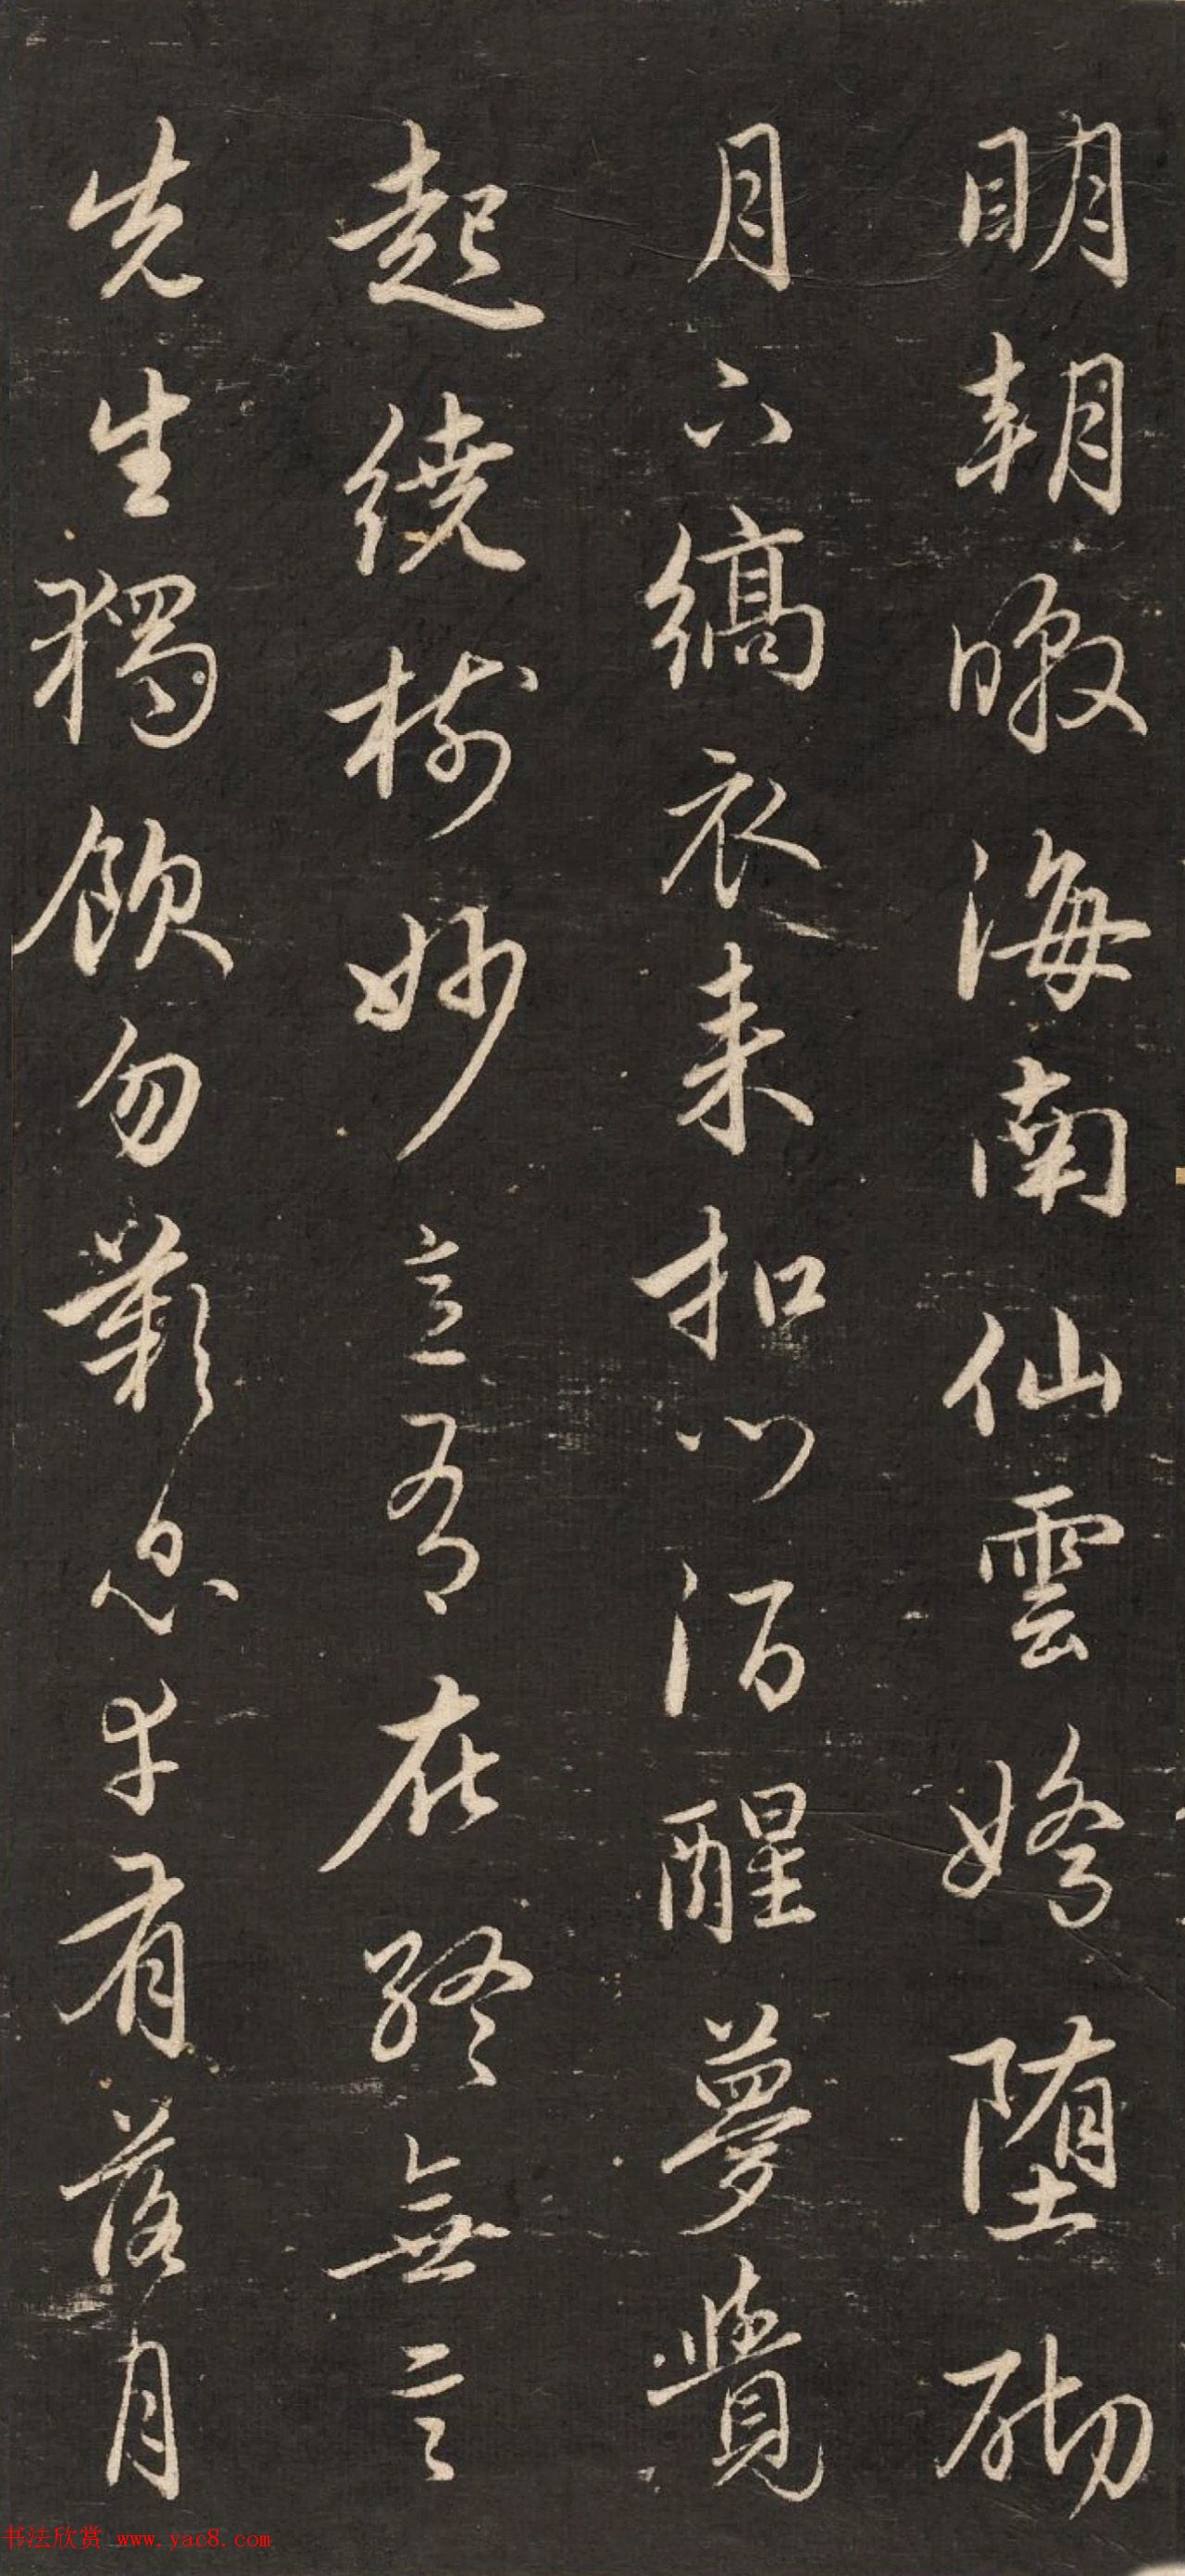 明朝暾海南仙雲嬌墮砌
月下縞衣來扣門酒醒夢覺
起繞樹妙意有在終無言
先生獨飲勿歎息幸有落月
书法欣赏 www.yac8.com